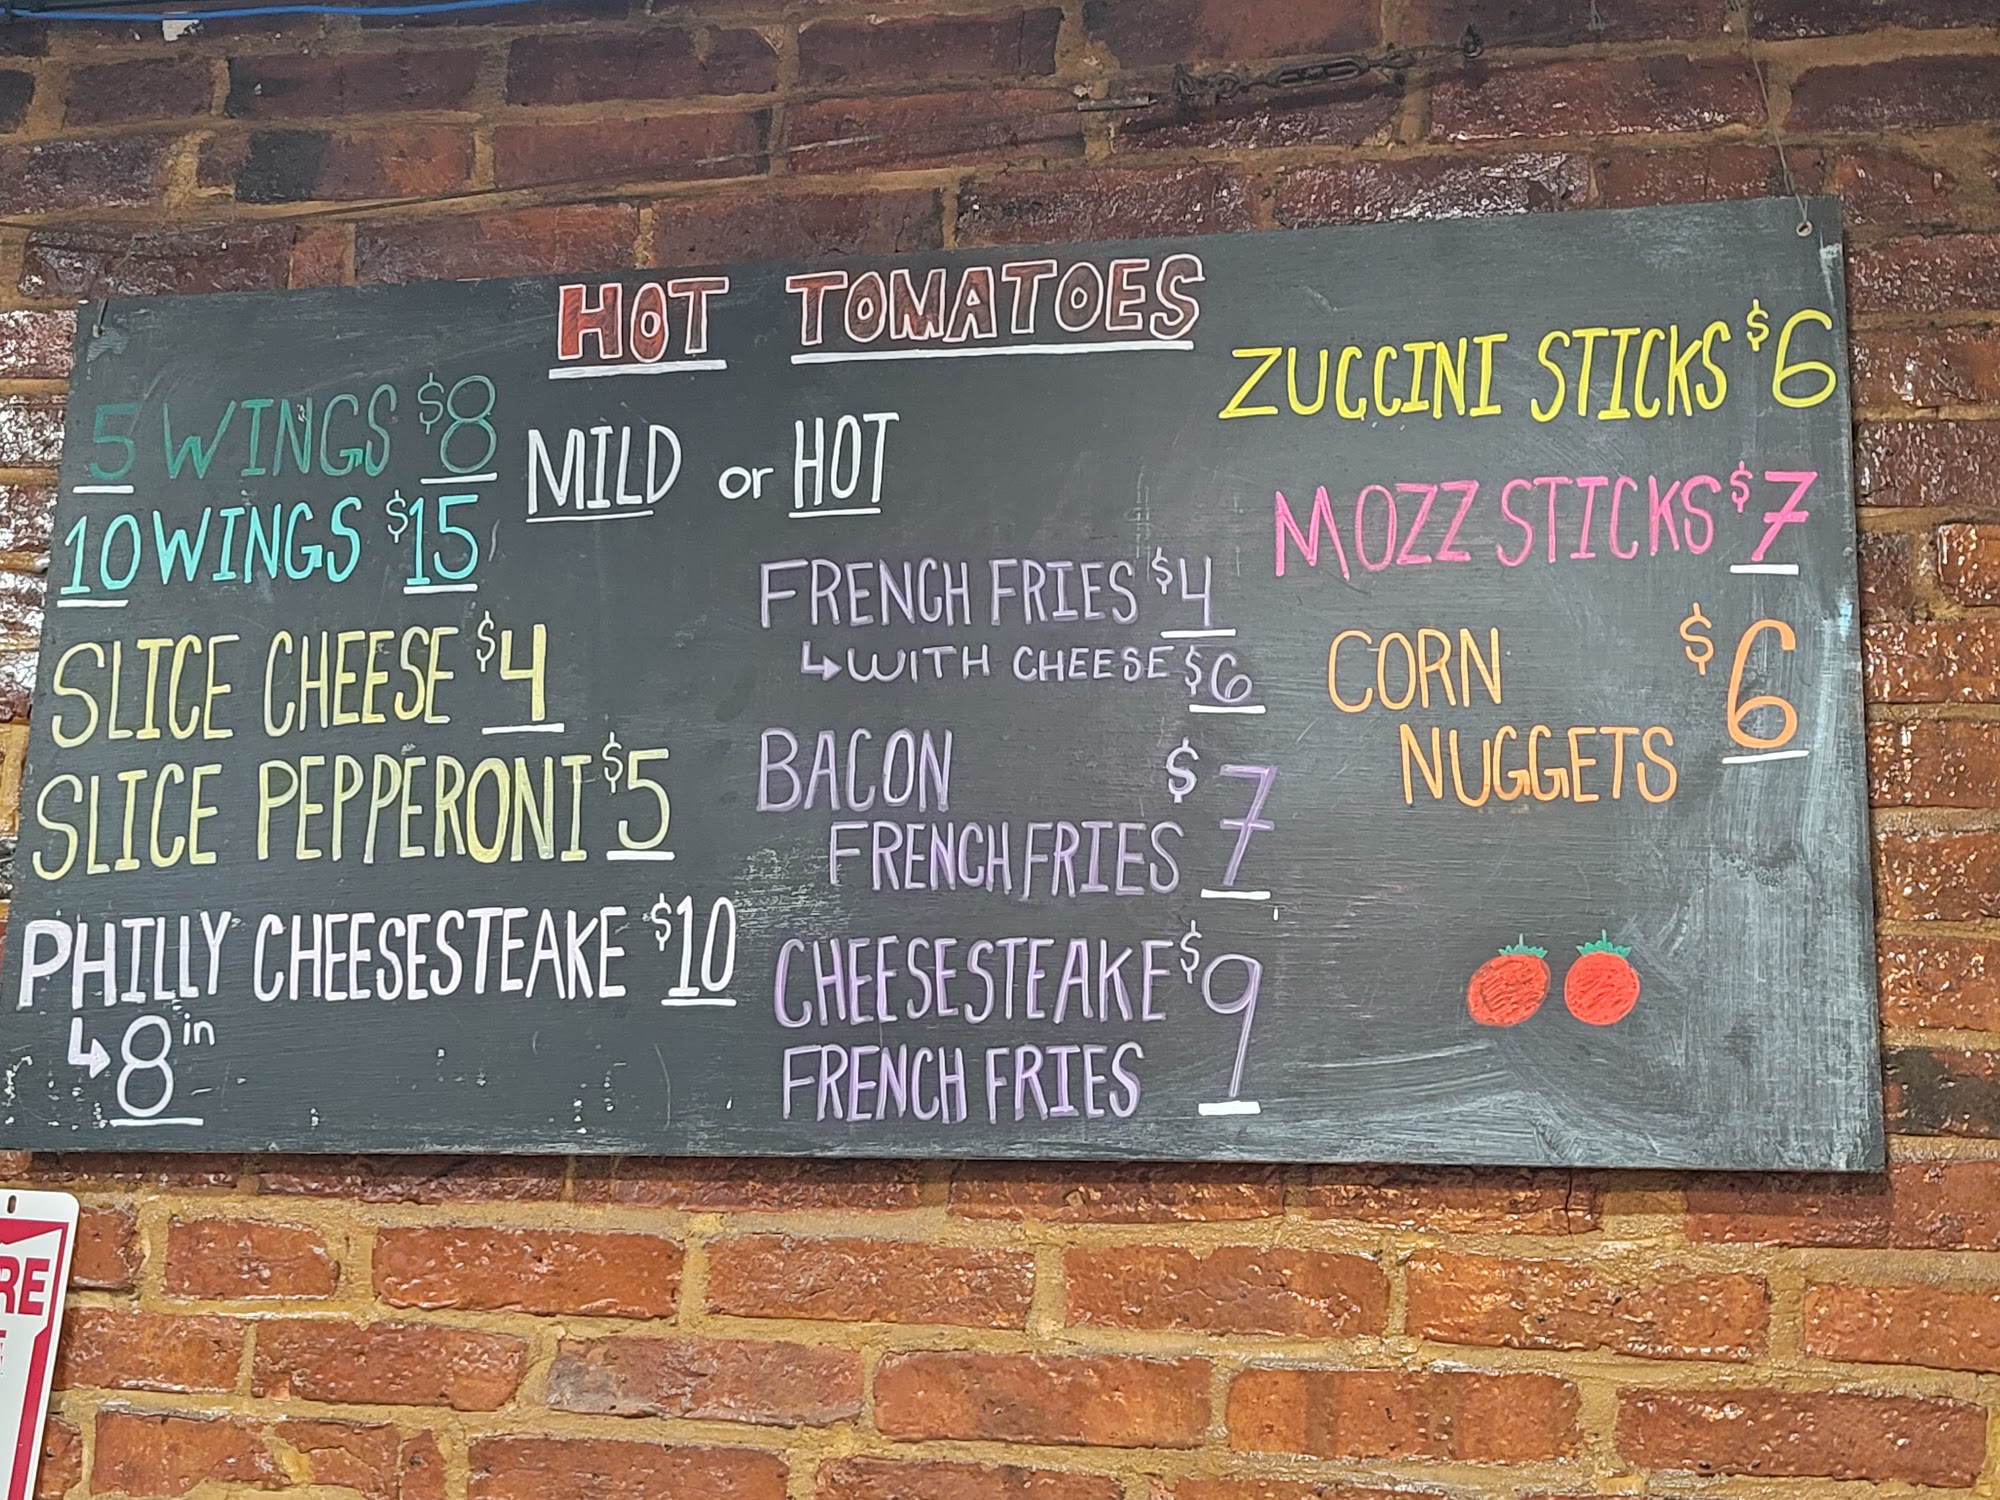 HOT TOMATOES
5 WINGS $8
10 WINGS $15
MILD or HOT
SLICE CHEESE $4
SLICE PEPPERONI $5
PHILLY CHEESESTEAKE $10
↳ 8 in
FRENCH FRIES $4
↳ WITH CHEESE $6
BACON $7
FRENCH FRIES
CHEESESTEAKE $9
FRENCH FRIES
ZUCCINI STICKS $6
MOZZ STICKS $7
CORN $6
NUGGETS
RE